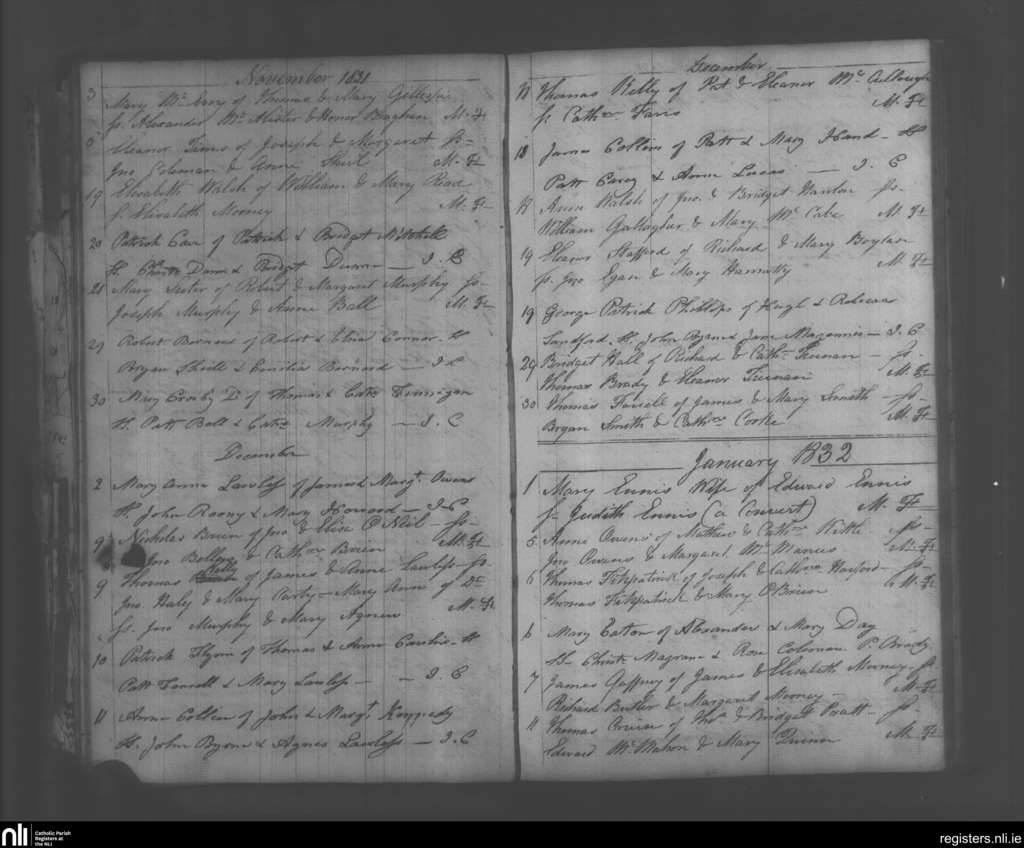 November 1831
3 Mary Mc Evoy of Thomas & Mary Gillespie
ss. Alexander Mc Alister & Honor Bingham M. Ft
Eleanor Times of Joseph & Margaret
Jno Coleman & Anne Shiel M. Ft
19 Elizabeth Walsh of William & Mary Read
s. Elizabeth Mooney M. Ft
20 Patrick Carr of Patrick & Bridget
Ss. Dunn & Bridgt Dunn — J. C
21 Mary of Robert & Margaret Murphy Ss.
Joseph Murphy & Anne Ball M. Ft
29 Robert Bernard of Robert & Eliza Connor Ss
Bryan Shields & Emilia Bernard — J. C
30 Mary Comby D. of Thomas & Cathe Finnigan
Ss. Patt Ball & Cathe Murphy — J. C
December
2 Mary Anne Lawless of James & Margt. Owens
Ss. John Roony & Mary Howard — J. C
9 Nicholas Brien of Jno & Eliza O'Neil — ss.
Jno & Cathne Brien M. Ft
9 Thomas of James & Anne Lawless — ss.
Jno Haly & Mary Carty — Mary Anne of Do
ss. Jno Murphy & Mary Agnew M. Ft
10 Patrick Flynn of Thomas & Anne Ss
Patt Farrell & Mary Lawless — — J. C
11 Anne Collen of John & Margt. Kennedy
Ss. John Byrne & Agnes Lawless — J. C
December
11 Thomas Kelly of Pat & Eleanor Mc Cullough
ss Cathne Faris M. Ft
18 James Collins of Patt & Mary Hand — Ss
Patt Carey & Anne Lucas — J. C
Anne Walsh of Jno. & Bridget Hanlon ss.
William Gallagher & Mary Mc Cabe M. Ft
19 Eleanor Stafford of Richard & Mary Boylan
ss. Jno Egan & Mary M. Ft
19 George Patrick Phillips of Hugh & Rebecca
Sandford. Ss. John Byrne & Jane Magennis — J. C
29 Bridget Hall of Richard & Cathne Keenan — ss.
Thomas Brady & Eleanor M. Ft
30 Thomas Farrell of James & Mary Smith — ss.
Bryan Smith & Cathne Corke M. Ft
January 1832
1 Mary Ennis Wife of Edward Ennis
s. Judith Ennis (a Convert) M. Ft
5 Anne Owens of Mathew & Cathne Kettle ss.
Jno Owens & Margaret Mc Manus M. Ft
6 Thomas Fitzpatrick of Joseph & Cathne Harford — ss.
Thomas Fitzpatrick & Mary O'Brien M. Ft
6 Mary Eaton of Alexander & Mary Day
Ss. Christr. Magrane & Rose Coleman P. Brady
7 James Gaffney of James & Elizabeth Mooney — ss.
Richard Butler & Margaret Mooney — M. Ft
11 Thomas Cruise of Thos. & Bridget Pratt — ss.
Edward Mc Mahon & Mary M. Ft
nli Catholic Parish Registers at the NLI
registers.nli.ie